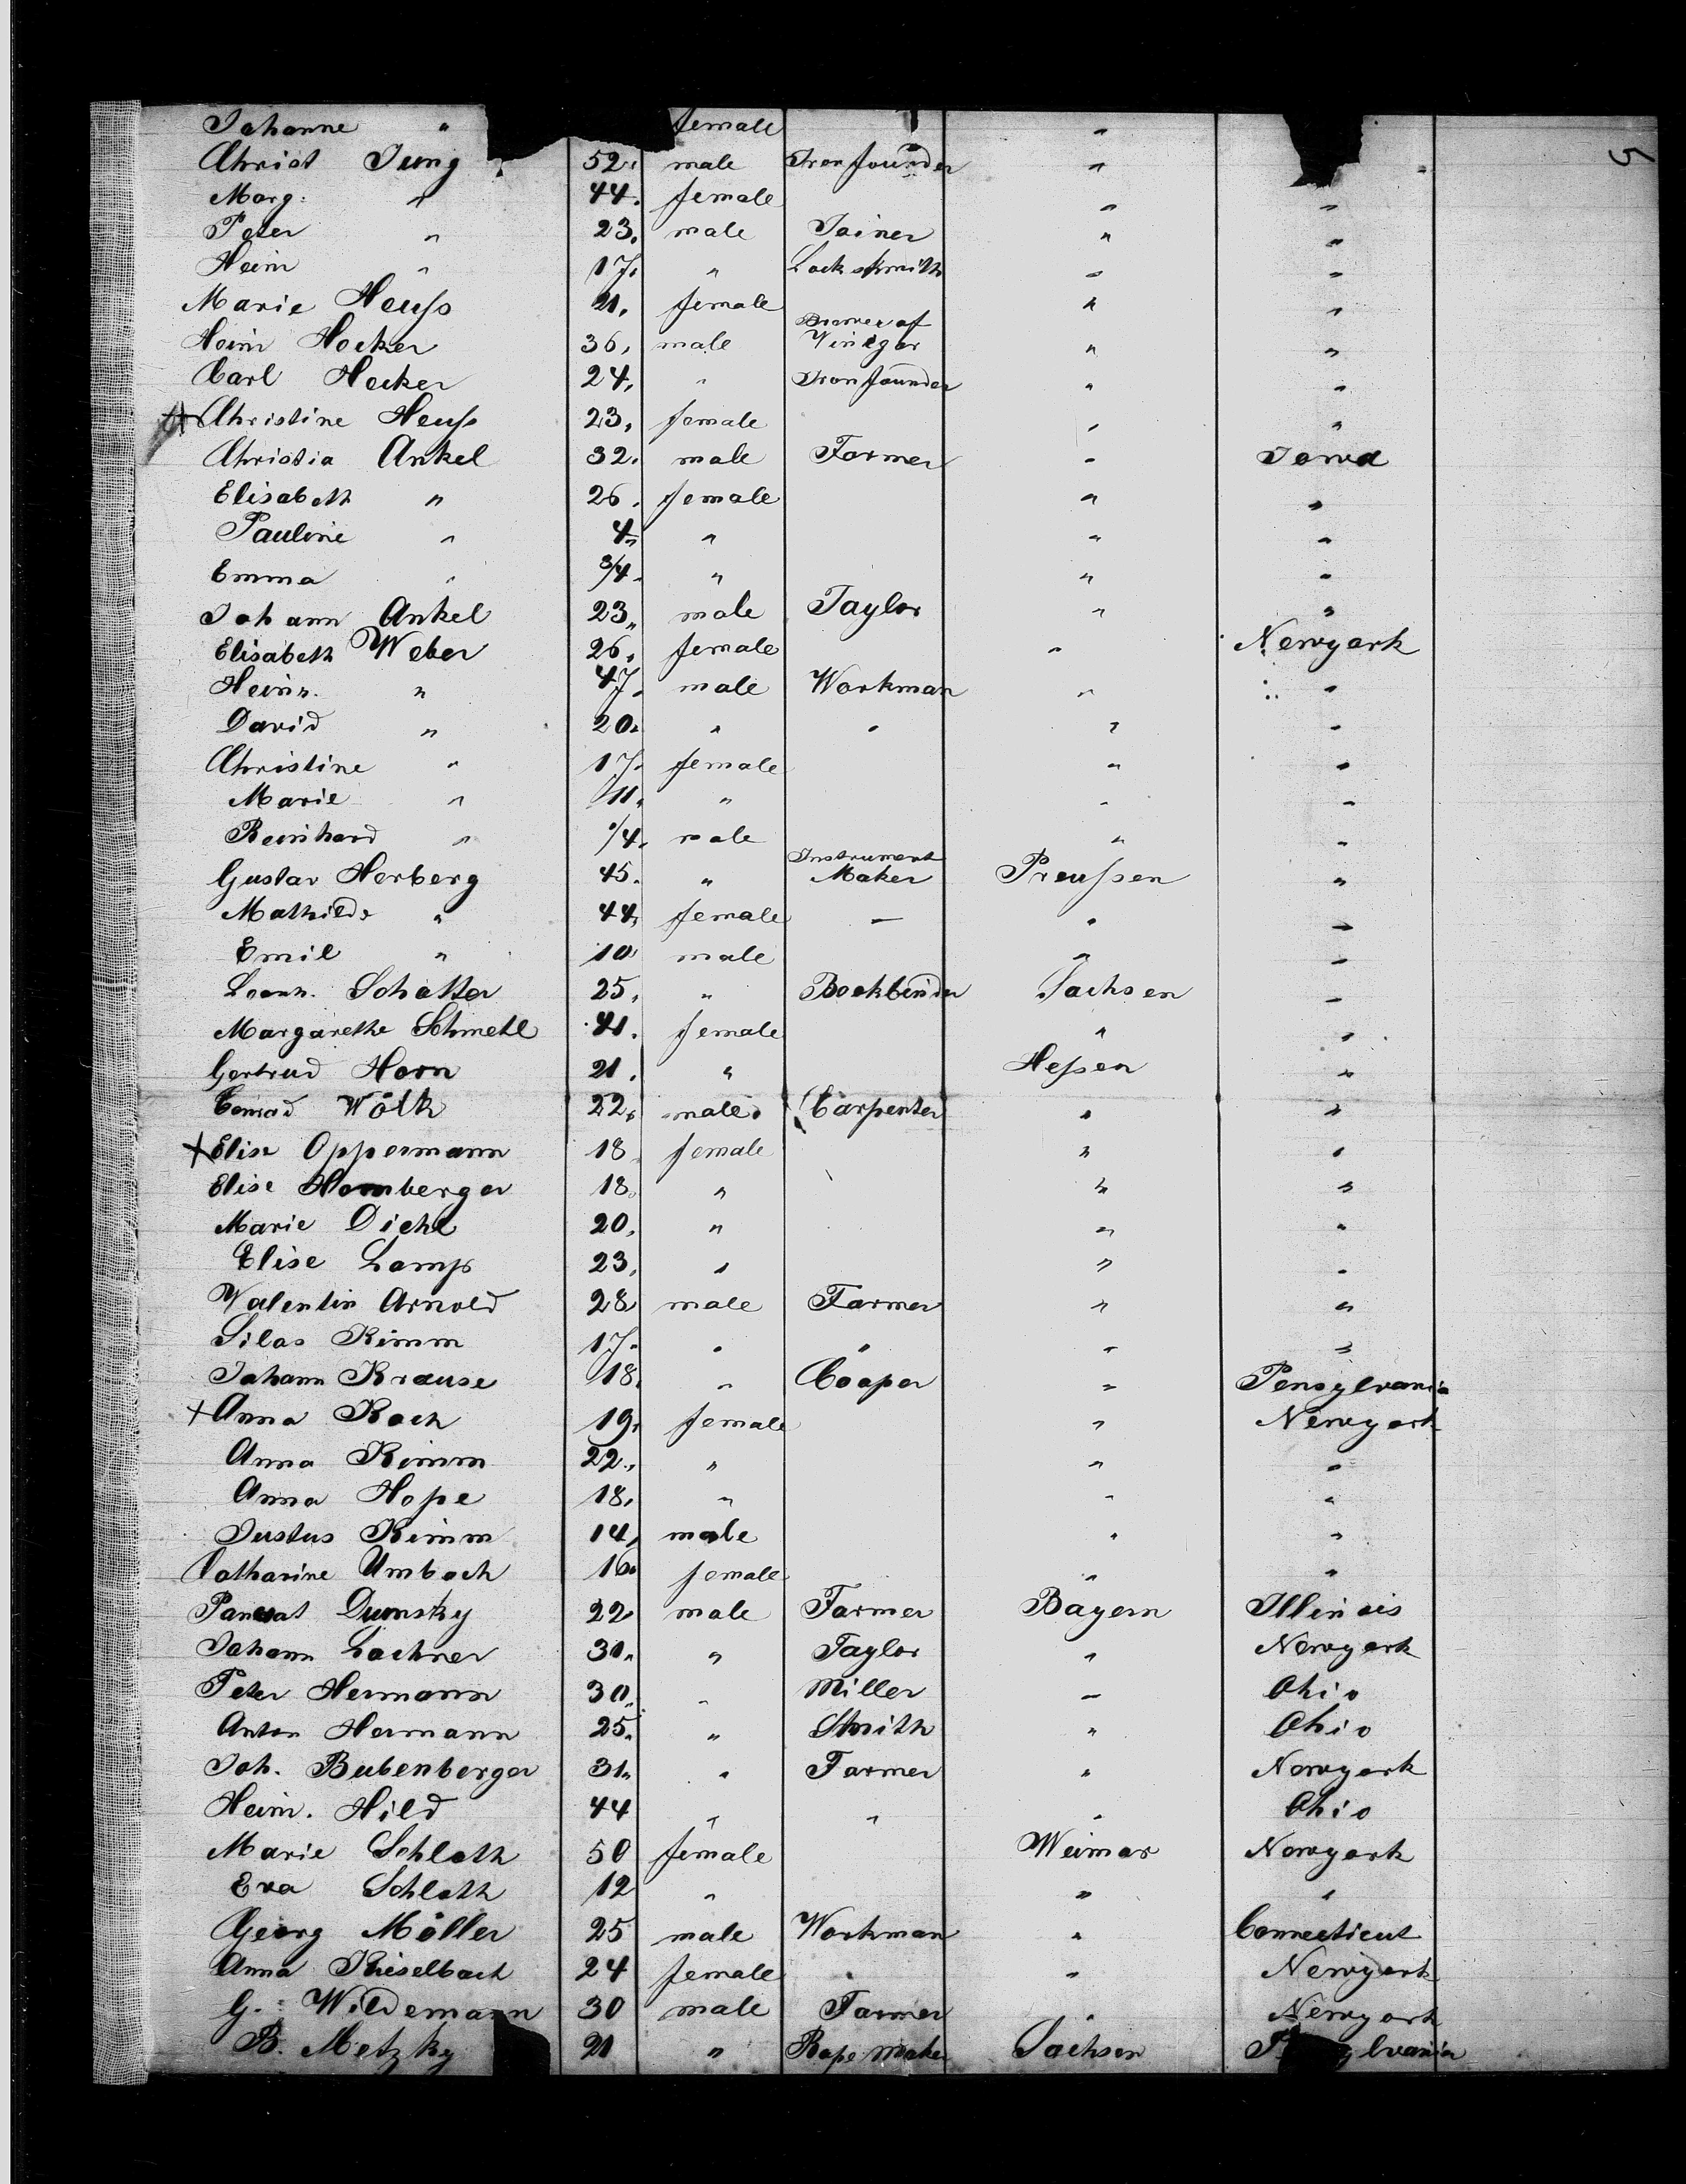 5
Johanne " female "
Christ Jung 52. male Iron founder "
Marg. " 44. female " "
Peter " 23. male Joiner " "
Hein " 17. " Lock smith " "
Marie Heuſs 21. female " "
Hein Hecker 36. male Brewer of Vinegar " "
Carl Hecker 24. " Iron founder " "
Christine Heuſs 23. female " "
Christia Ankel 32. male Farmer " Iowa
Elisabeth " 26. female " "
Pauline " 4 " " "
Emma " 3/4. " " "
Johann Ankel 23 male Taylor " "
Elisabeth Weber 26. female " Newyork
Heinr. " 47. male Workman " "
David " 20. " " " "
Christine " 17. female " "
Marie " 11. " " "
Reinhard " /4. male " "
Gustav Herberg 45. " Instrument Maker Preuſsen "
Mathilde " 44. female — " "
Emil " 10 male " "
Leonh. Schatter 25. " Bookbinder Sachsen "
Margarethe Schmehl 41. female " "
Gertrud Horn 21. " Heſsen "
Conrad Wölk 22. male. Carpenter " "
+ Elise Oppermann 18 female " "
Elise Homberger 18. " " "
Marie Diehl 20. " " "
Elise Lamp 23. " " "
Valentin Arnold 28 male Farmer " "
Silas Kimm 17. " " " "
Johann Krause 18. " Cooper " Pensylvania
+ Anna Koch 19. female " Newyork
Anna Kimm 22. " " "
Anna Hope 18. " " "
Justus Kimm 14. male " "
Catharine Umbach 16. female " "
Dumsky 22. male Farmer Bayern Illinois
Johann Lachner 30. " Taylor " Newyork
Peter Hermann 30. " Miller " Ohio
Anton Hermann 25. " Smith " Ohio
Joh. Bubenberger 31. " Farmer " Newyork
Hein. Hild 44 " " " Ohio
Marie Schloth 50 female Weimar Newyork
Eva Schloth 12 " " "
Georg Möller 25 male Workman " Connecticut
Anna Kieselbach 24 female " Newyork
G. Wildemann 30 male Farmer " Newyork
B. Metzky 21 " Rope Maker Sachsen P ylvania